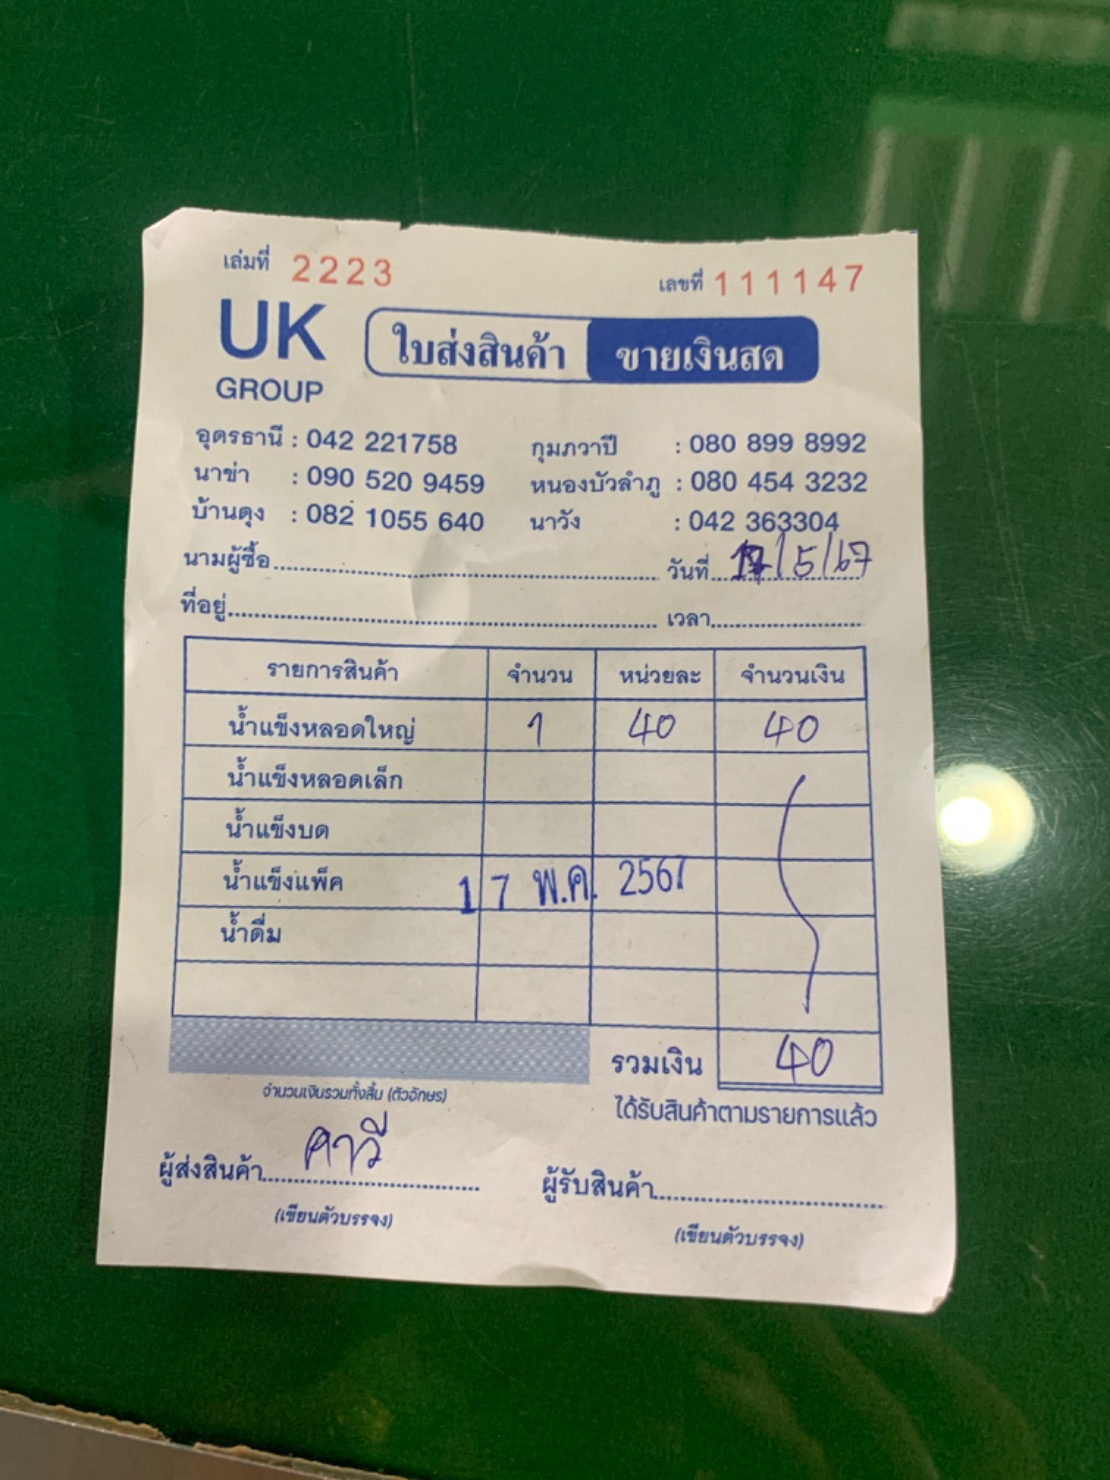 เล่มที่ 2223 เลขที่ 111147
UK GROUP
ใบส่งสินค้า ขายเงินสด
อุดรธานี : 042 221758 กุมภวาปี : 080 899 8992
นาข่า : 090 520 9459 หนองบัวลำภู : 080 454 3232
บ้านดุง : 082 1055 640 นาวัง : 042 363304
นามผู้ซื้อ วันที่ 17/5/67
ที่อยู่ เวลา
รายการสินค้า จำนวน หน่วยละ จำนวนเงิน
น้ำแข็งหลอดใหญ่ 1 40 40
น้ำแข็งหลอดเล็ก
น้ำแข็งบด
น้ำแข็งแพ็ค 17 พ.ค. 2567
น้ำดื่ม
รวมเงิน 40
จำนวนเงินรวมทั้งสิ้น (ตัวอักษร)
ได้รับสินค้าตามรายการแล้ว
ผู้ส่งสินค้า คาวี ผู้รับสินค้า
(เขียนตัวบรรจง) (เขียนตัวบรรจง)